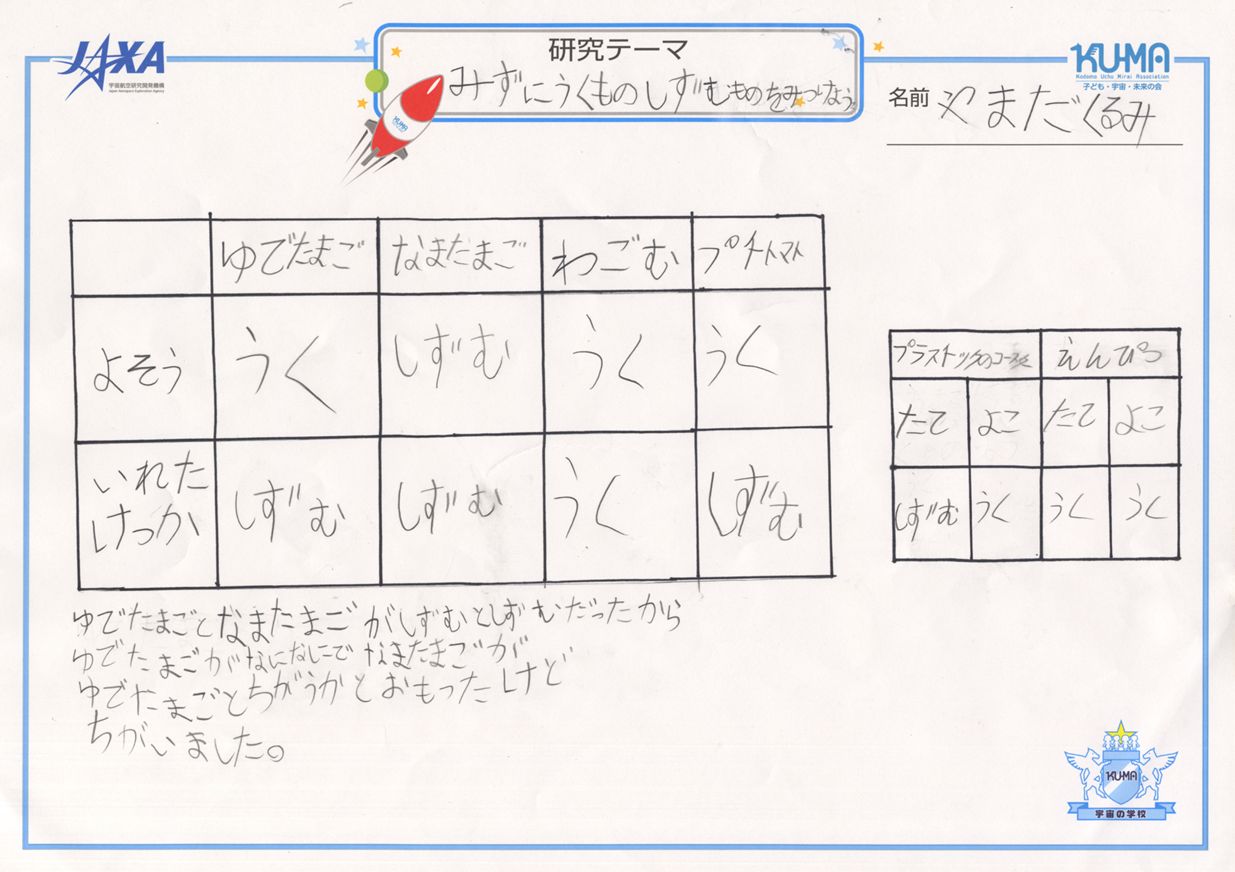 JAXA
宇宙航空研究開発機構
Japan Aerospace Exploration Agency
研究テーマ
みずにうくものしずむものをみつけよう。
KUMA
Kodomo Uchu Mirai Association
子ども・宇宙・未来の会
名前 やまだくるみ
KUMA
ゆでたまご なまたまご わごむ プチトマト
よそう うく しずむ うく うく
いれた
けっか しずむ しずむ うく しずむ
えんぴつ
たて よこ たて よこ
しずむ うく うく うく
ゆでたまごとなまたまごがしずむとしずむだったから
ゆでたまごがなになしにで なまたまごが
ゆでたまごとちがうかとおもったけど
ちがいました。
KUMA
宇宙の学校